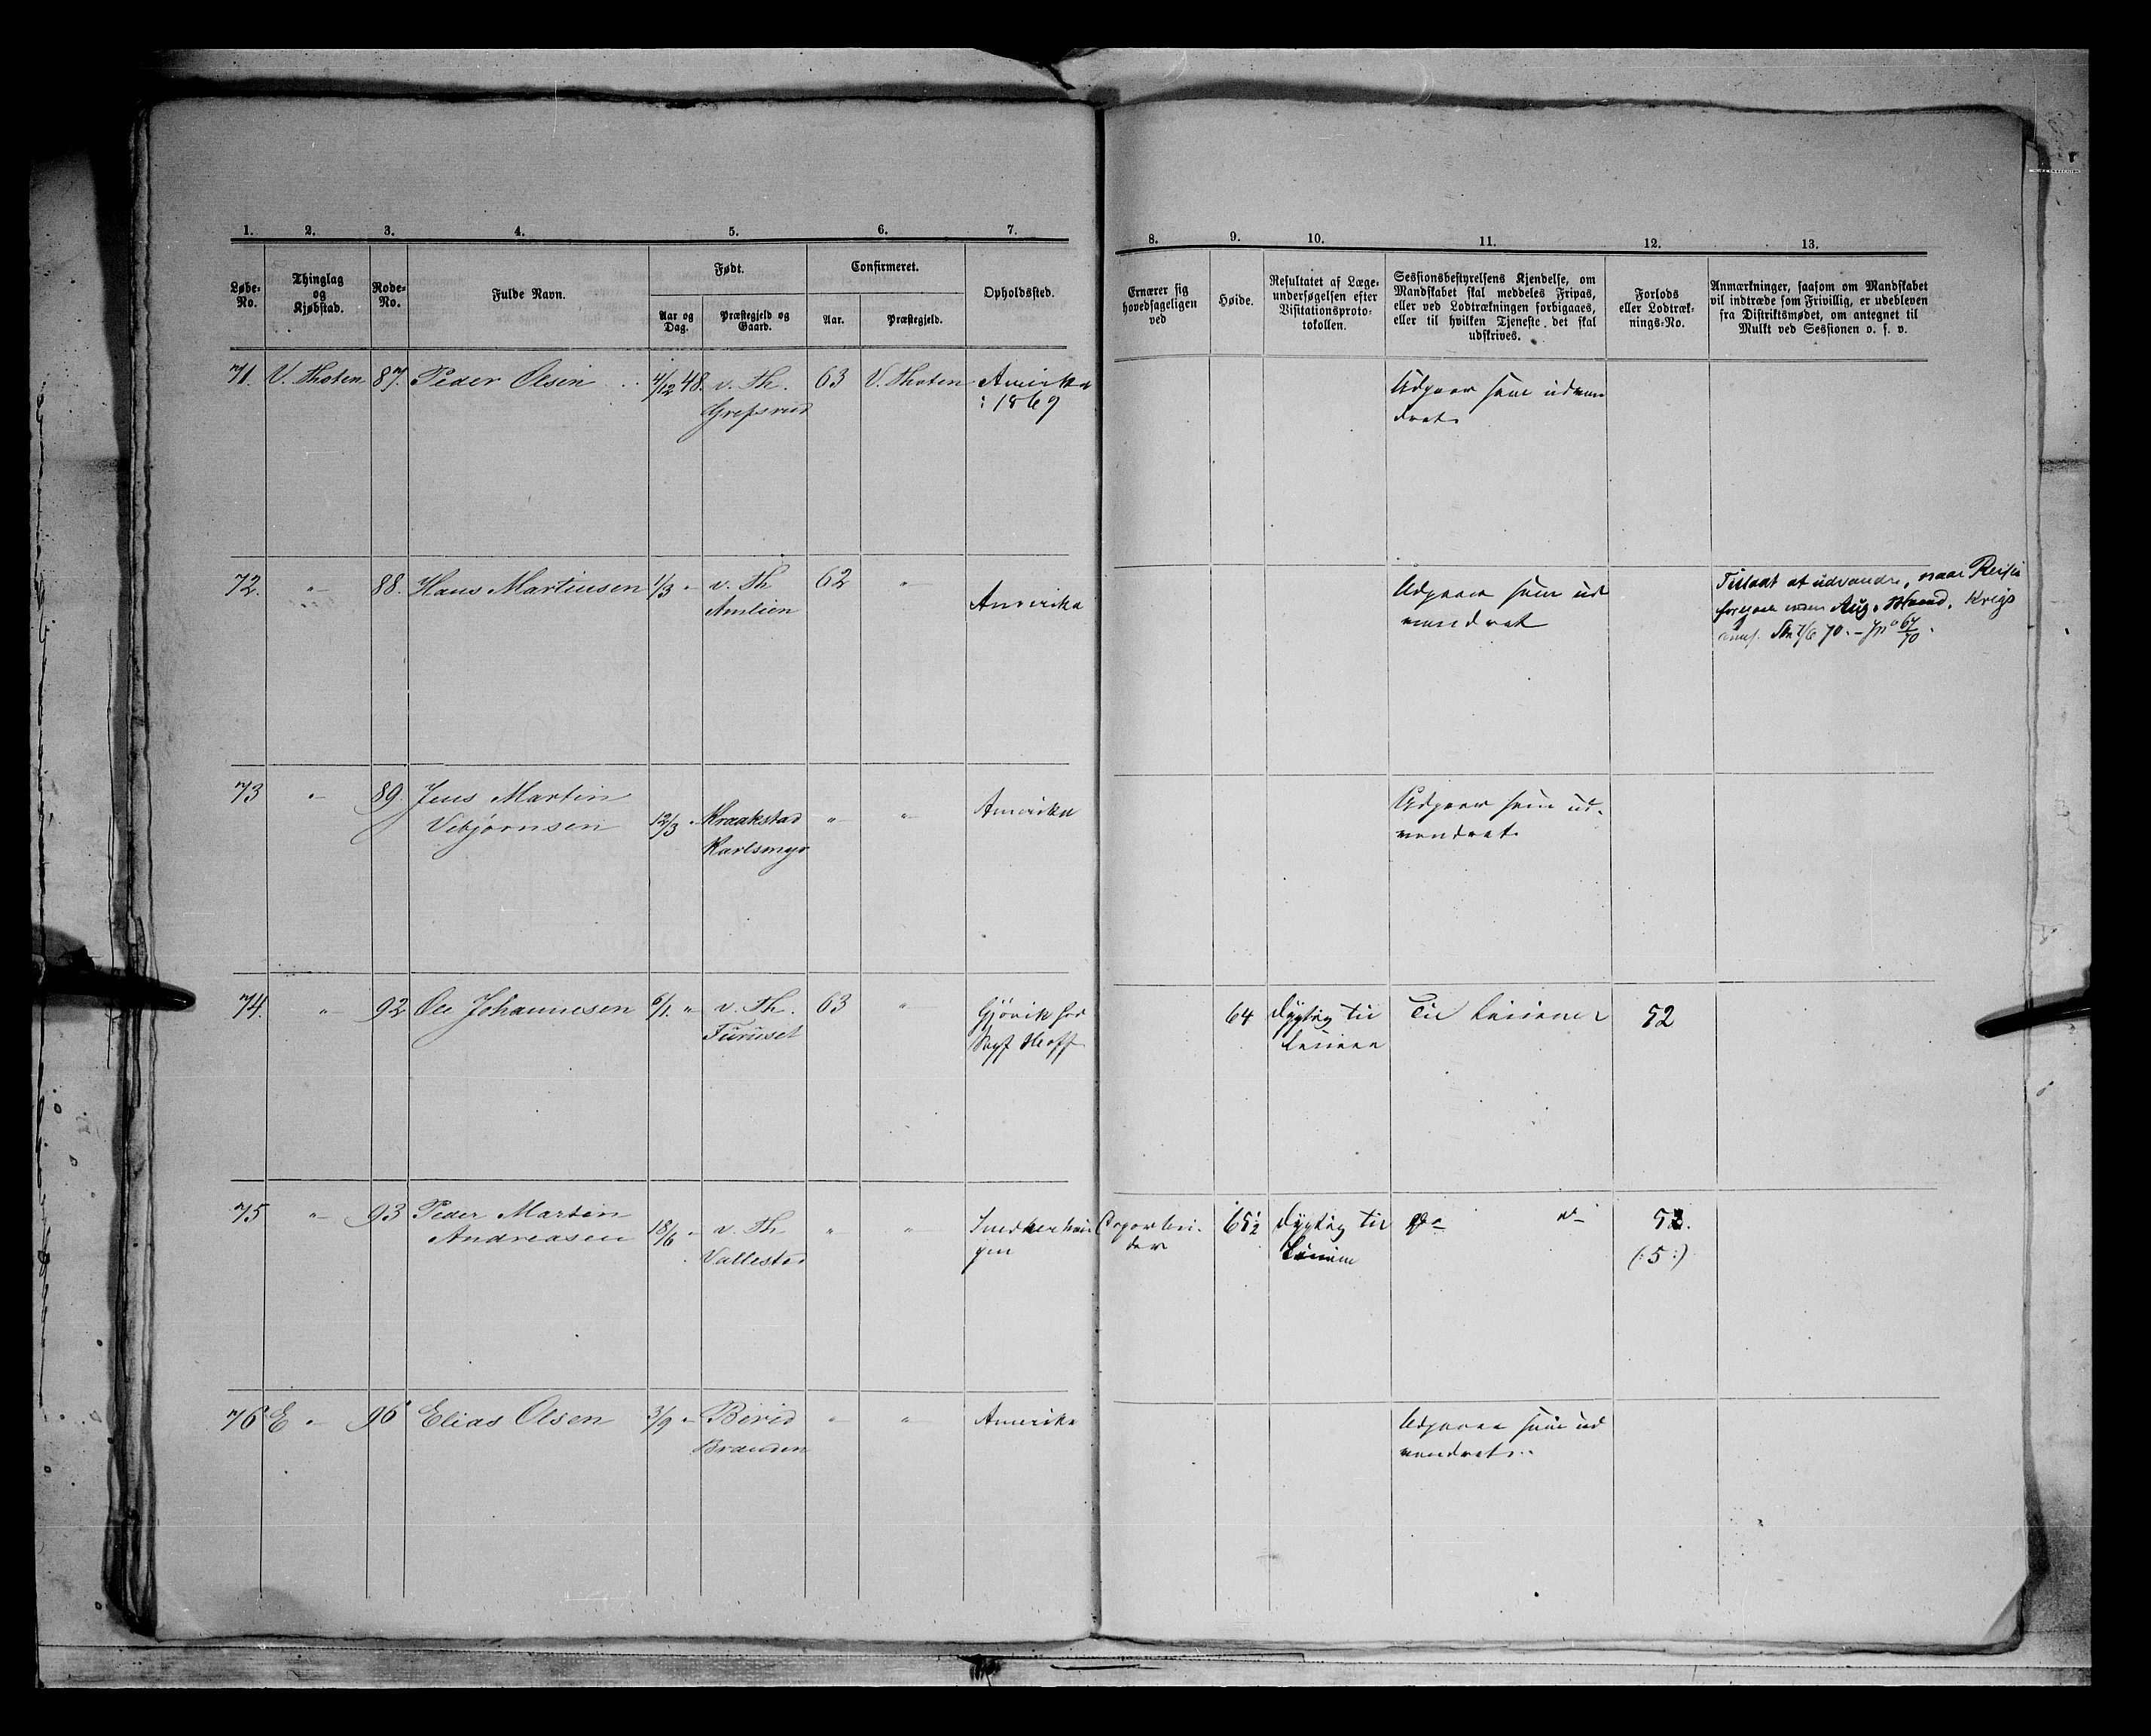 1. 2. 3. 4. 5. 6. 7. 8. 9. 10. 11. 12. 13.
Løbe-
No.
Thinglag
og
Kjøbstad.
Rode-
No.
Fulde Navn.
Født.
Aar og
Dag.
Præstegjeld og
Gaard.
Confirmeret.
Aar.
Præstegjeld.
Opholdssted.
Ernærer sig
hovedsageligen
ved
Høide.
Resultatet af Læge-
undersøgelsen efter
Visitationsproto-
tokollen.
Sessionsbestyrelsens Kjendelse, om
Mandskabet skal meddeles Fripas,
eller ved Lodtrækningen forbigaaes,
eller til hvilken Tjeneste det skal
udskrives.
Forlods
eller Lodtræk-
nings-No.
Anmærkninger, saasom om Mandskabet
vil indtræde som Frivillig, er udebleven
fra Distriktsmødet, om antegnet til
Mulkt ved Sessionen o. s. v.
71. V. Thoten 87. Peder Olsen 4/12 48. v. Th. 63 V. Thoten Amerika Udgaar som udvan
Grefsrud i 1869 dret
72. " 88. Hans Martinsen 1/3 " v. Th 62 " Amerika Udgaar som ud
Amlien vandret
Tilladt at udvandre, naar Reisen
foregaar inden Aug. Maaned. Krigs
70. - 67/70.
73 " 89. Jens Martin Amerika Udgaar som ud-
Vebjørnsen 12/3 " Kraakstad " " vandret
Karlsmyr
74. " 92 Ole Johannesen 6/1. " v. Th. 63 " Gjøvik hos 64 Dygtig til Til Linien 52
Furuset Hoff Linien
75 " 93 Peder Martin
Andreasen 18/6 " v. Th " " 65½ Dygtig til Do Do 52.
Vallestad gen Linien (: 5 :)
76 E " 96 Elias Olsen 3/9 " Birid " " Amerika Udgaar som ud
vandret